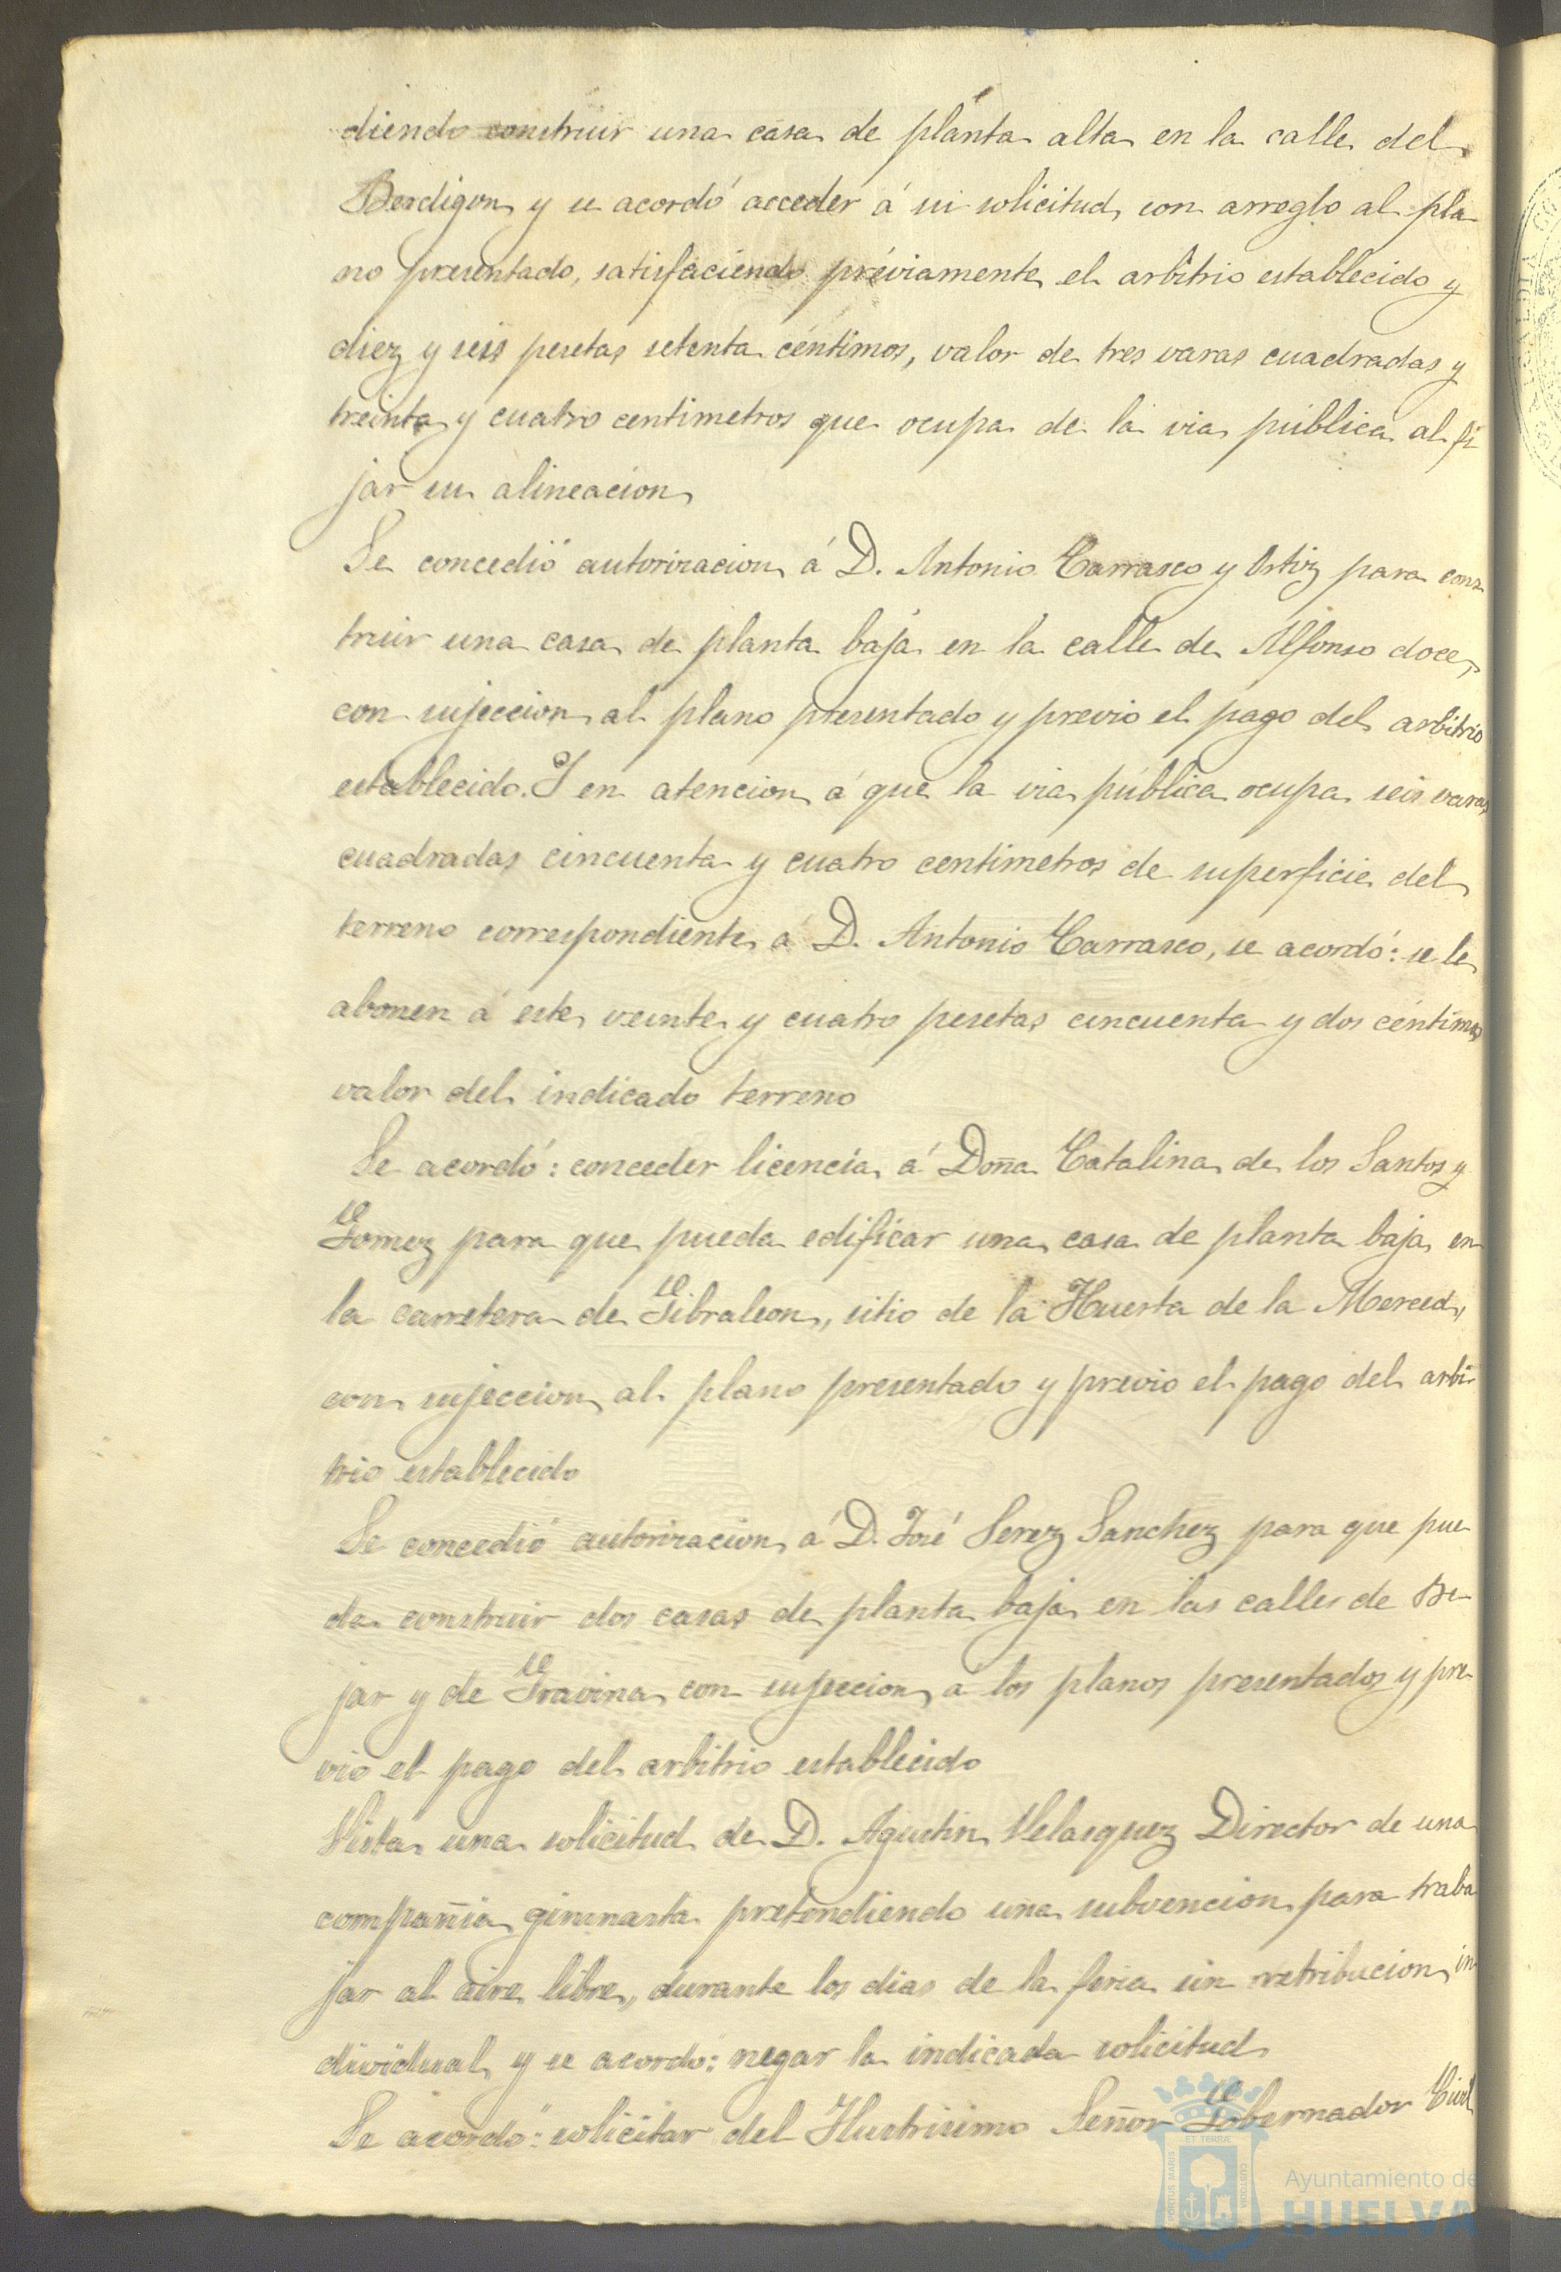 diendo construir una casa de planta alta en la calle del
Berdigon y se acordó acceder á su solicitud, con arreglo al pla
no presentado, satisfaciendo préviamente el arbitrio establecido y
diez y seis pesetas setenta céntimos, valor de tres varas cuadradas y
treinta y cuatro centimetros que ocupa de la via pública al fi
jar su alineacion
Se concedió autorizacion á D. Antonio Carrasco y Ortiz para cons
truir una casa de planta baja en la calle de Alfonso doce,
con sujeccion al plano presentado y previo el pago del arbitrio
establecido. Y en atencion á que la via pública ocupa seis varas
cuadradas cincuenta y cuatro centimetros de superficie del
terreno correspondiente á D. Antonio Carrasco, se acordó: se le
abonen á este veinte y cuatro pesetas cincuenta y dos céntimos
valor del indicado terreno
Se acordó: conceder licencia á Doña Catalina de los Santos y
Gomez para que pueda edificar una casa de planta baja en
la carretera de Gibraleon, sitio de la Huerta de la Merced,
con sujeccion al plano presentado y previo el pago del arbi-
trio establecido
Se concedió autorizacion á D. José Perez Sanchez para que pue
da construir dos casas de planta baja en las calles de Be
jar y de Gravina con sujeccion á los planos presentados y pre-
vio el pago del arbitrio establecido
Vista una solicitud de D. Agustin Velasquez Director de una
compañia gimnasta pretendiendo una subvencion para traba
jar al aire libre, durante los dias de la feria sin retribucion in
dividual, y se acordo: negar la indicada solicitud
Se acordó: solicitar del Ilustrisimo Señor Gobernador Civil
PORTUS MARIS
ET TERRÆ
CUSTODIA
Ayuntamiento de
HUELVA